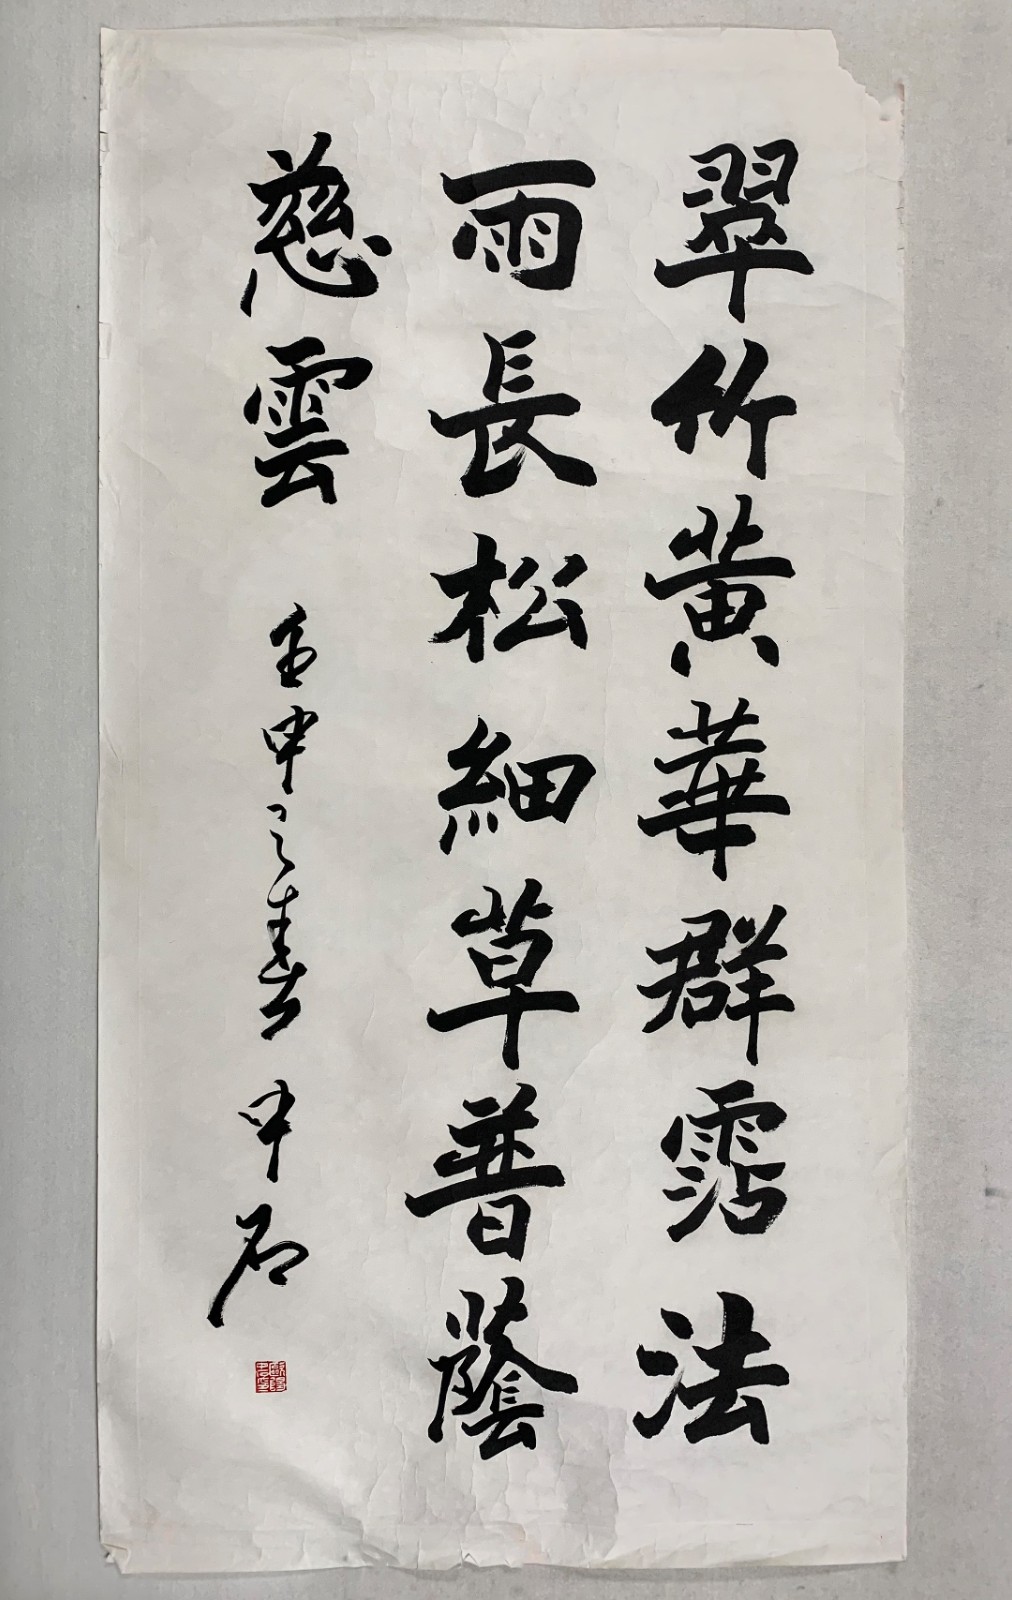 翠竹黄華群霑法
雨長松細草普蔭
慈雲 壬申之春 中石